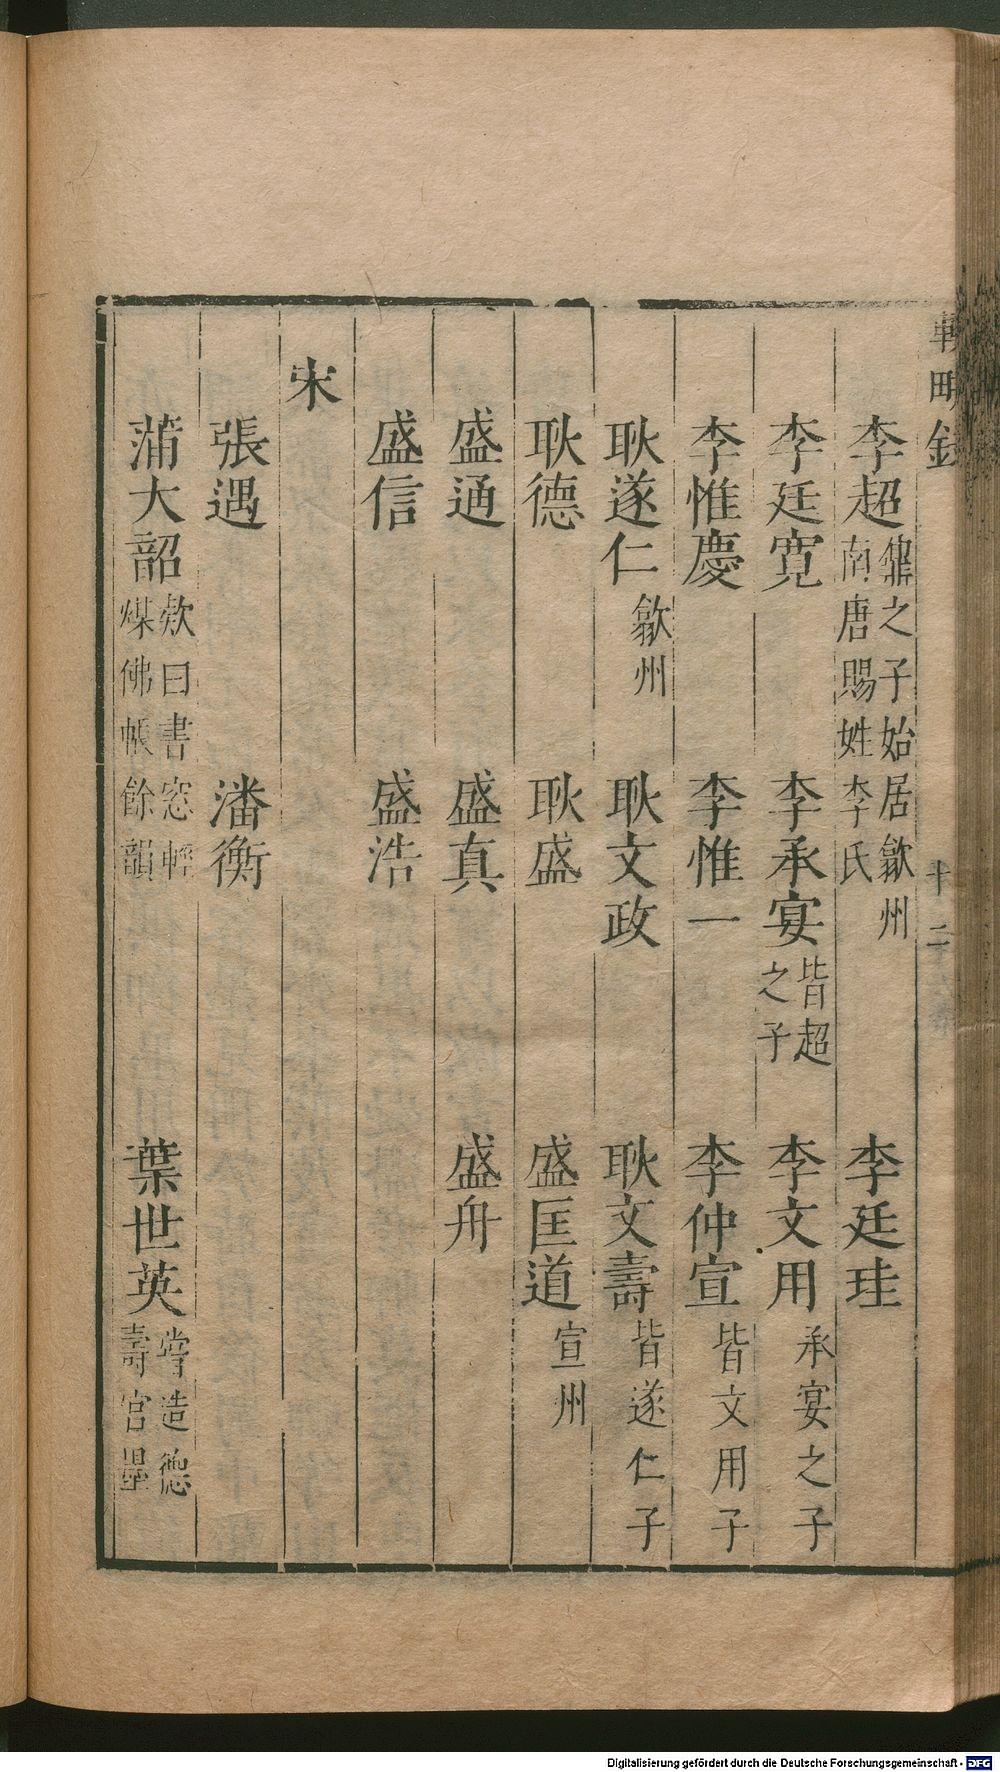 李超鼐之子始居歙州南唐賜姓李氏　李廷珪
李廷寬　李承宴皆超之子　李文用承宴之子
李惟慶　李惟一　李仲宣皆文用子
耿遂仁歙州　耿文政　耿文壽皆遂仁子
耿德　耿盛　盛匡道宣州
盛通　盛真　盛舟
盛信　盛浩
宋
張遇　潘衡
蒲大韶欵曰書窓輕煤佛帳餘韻　葉世英嘗造德壽宮墨
Digitalisierung gefördert durch die Deutsche Forschungsgemeinschaft - DFG